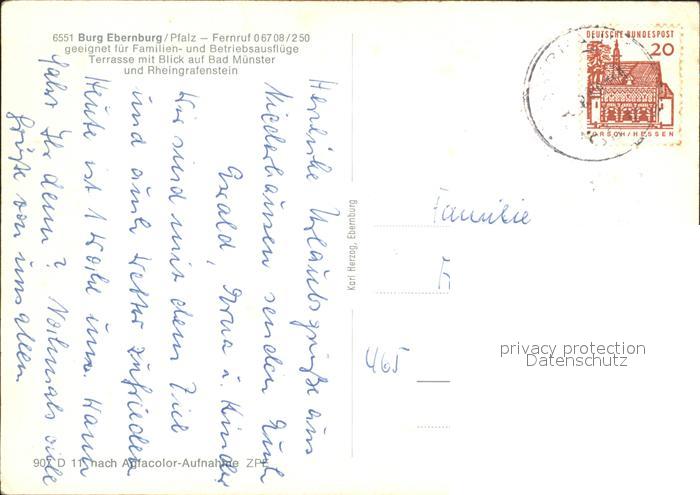 6551 Burg Ebernburg/Pfalz – Fernruf 06708/250
geeignet für Familien- und Betriebsausflüge
Terrasse mit Blick auf Bad Münster
und Rheingrafenstein
Herzliche Urlaubsgrüße aus
Niederhausen senden Euch
Ewald, Erna u. Kinder
Wir sind mit dem Ziel
und auch Wetter zufrieden
Heute ist 1 Woche um. Wann
fahrt Ihr denn? Nochmals viele
Grüße von uns allen
90/ D 11 nach Agfacolor-Aufnahme ZPE
Karl Herzog, Ebernburg
DEUTSCHE BUNDESPOST
20
LORSCH/HESSEN
Familie
465
privacy protection
Datenschutz